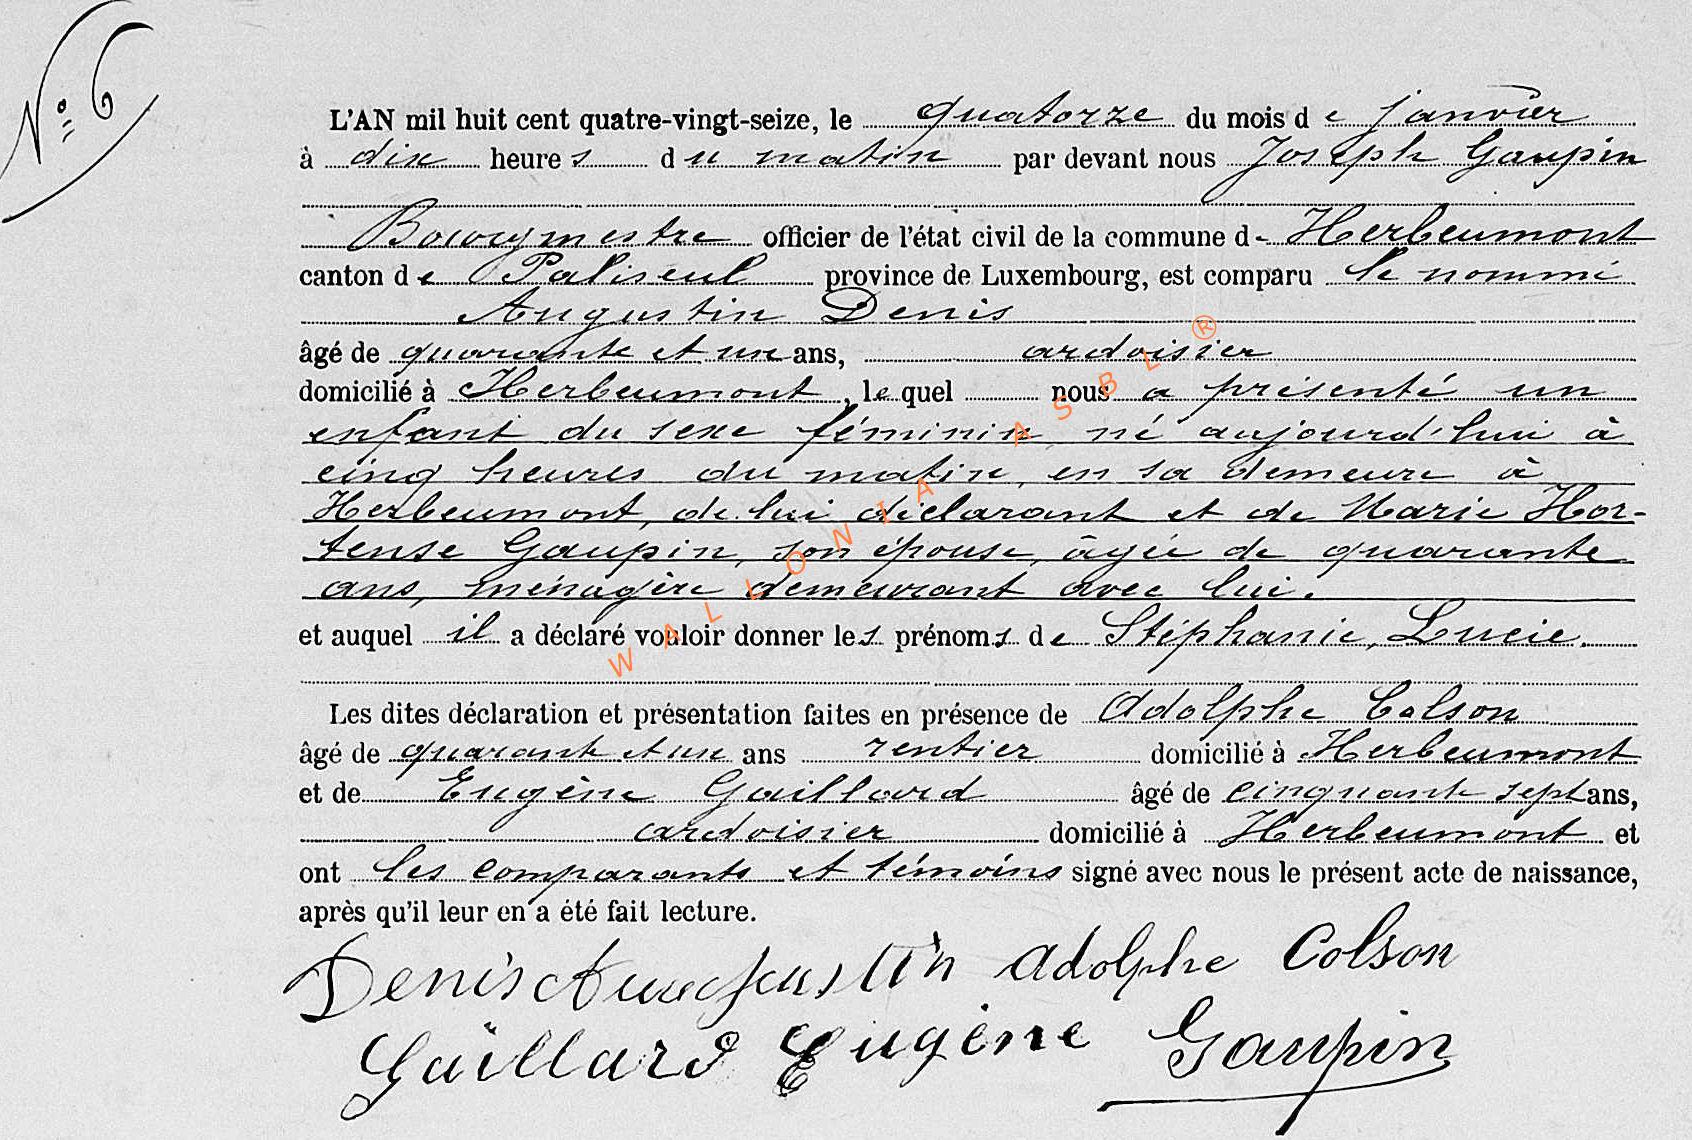 N° 6
L'AN mil huit cent quatre-vingt-seize, le quatorze du mois de janvier
à dix heures du matin par devant nous Joseph Gaupin
Bourgmestre officier de l'état civil de la commune de Herbeumont
canton de Paliseul province de Luxembourg, est comparu le nommé
Augustin Denis
âgé de quarante et un ans, ardoisier
domicilié à Herbeumont, lequel nous a présenté un
enfant du sexe féminin, né aujourd'hui à
cinq heures du matin, en sa demeure à
Herbeumont, de lui déclarant et de Marie Hor-
tense Gaupin, son épouse, âgée de quarante
ans, ménagère demeurant avec lui.
et auquel il a déclaré vouloir donner les prénoms de Stéphanie, Lucie.
Les dites déclaration et présentation faites en présence de Adolphe Colson
âgé de quarante et un ans rentier domicilié à Herbeumont
et de Eugène Gaillard âgé de cinquante sept ans,
ardoisier domicilié à Herbeumont et
ont les comparants et témoins signé avec nous le présent acte de naissance,
après qu'il leur en a été fait lecture.
Denis Augustin Adolphe Colson
Gaillard Eugène Gaupin
WALLONIA ASBL ®